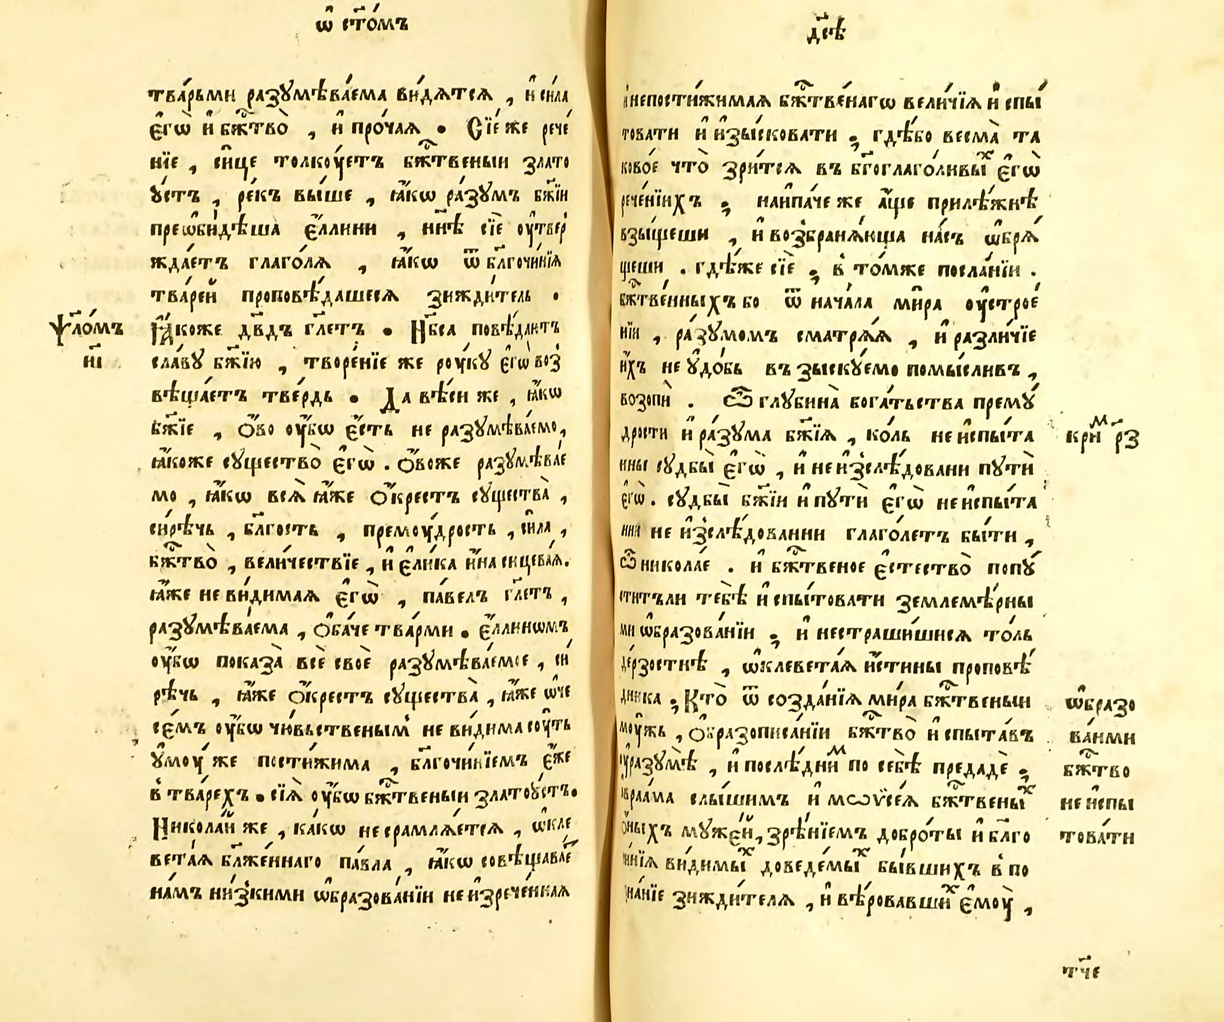 ѿ ст҃о́мъ
тва́рьми разꙋмѣва́ема ви́дѧтсѧ , и҆ си́ла
є҆гѡ̀ и҆ бж҃тво̀ , и҆ про́чаѧ . Сїе́ же рече́
нїе , си́це толкꙋ́етъ бж҃твеныи злато
ꙋ́стъ , ре́къ вы́ше , ꙗ҆́кѡ ра́зꙋмъ бж҃їи
преѡби́дѣша є҆́ллини , нн҃ѣ сїѐ оу҆твер
жда́етъ глаго́лѧ , ꙗ҆́кѡ ѿ бл҃гочи́нїѧ
тваре́й проповѣ́дашесѧ зижди́тель .
Ꙗ҆́коже дв҃дъ гл҃етъ . Нб҃са повѣ́даютъ
сла́вꙋ бж҃їю , творе́нїе же рꙋ́кꙋ є҆гѡ̀ воз
вѣща́етъ тве́рдь . Да вѣ́си же , ꙗ҆́кѡ
бж҃їе , ѻ҆́во оу҆́бѡ є҆́сть не разꙋмѣва́емо ,
ꙗ҆́коже сꙋщество̀ є҆гѡ̀ . ѻ҆́воже разꙋмѣ́вае
мо , ꙗ҆́кѡ всѧ̀ ꙗ҆́же ѻ҆́крестъ сꙋщества̀ ,
си́рѣчь , бл҃гость , премоу́дрость , си́ла ,
бж҃тво̀ , вели́чествїе , и҆ є҆ли́ка и҆́на сицева́ѧ .
ꙗ҆́же неви́димаѧ є҆гѡ̀ , па́велъ гл҃етъ ,
разꙋмѣва́ема , ѻ҆ба́че тва́рми . є҆́ллинѡмъ
оу҆́бѡ показа̀ всѐ своѐ разꙋмѣва́емое , си́
рѣчь , ꙗ҆́же ѻ҆́крестъ сꙋщества̀ , ꙗ҆́же ѡ҆че
се́мъ оу҆́бѡ чю́вьственымъ не ви́дима соу́ть
ᲂу҆моу́ же пости́жима , бл҃гочи́нїемъ є҆́же
в тва́рехъ . сїѧ̀ оу҆́бѡ бж҃твеныи златоу́стъ .
Никола́й же , ка́кѡ не срамлѧ́етсѧ , ѡ҆кле
вета́ѧ бл҃же́ннаго па́вла , ꙗ҆́кѡ совѣщава́е
на́мъ ни́зкими ѡ҆бразова́нїи не и҆зрече́ннаѧ
ѱало́мъ
и҃і
дс҃ѣ
и҆ непости́жимаѧ бж҃твенагѡ вели́чїѧ и҆спы́
товати и҆ и҆зы́сковати ; гдѣ́бо весма̀ та
ково́е что̀ зри́тсѧ въ бг҃оглаго́ливыⷯ є҆гѡ̀
рече́нїихъ ; наипа́че же а҆́ще прилѣ́жнѣ
взы́щеши , и҆ возбранѧ́юща на́съ ѡ҆брѧ́
щеши . гдѣ́же сїѐ ; в то́мже посла́нїи .
бж҃твенныхъ бо ѿ нача́ла ми́ра оу҆строе́
нїи , ра́зꙋмомъ сматрѧ́ѧ , и҆ разли́чїе
и҆́хъ не ᲂу҆до́бь въ зы́скꙋемо помы́сливъ ,
возопѝ . Ѽ глꙋбина̀ бога́тьства премꙋ́
дрости и҆ ра́зꙋма бж҃їѧ , ко́ль не и҆спы́та
нны сꙋдбы̀ є҆гѡ̀ , и҆ не и҆зслѣ́довани пꙋтѝ
є҆гѡ̀ . сꙋдбы̀ бж҃їи и҆ пꙋтѝ є҆гѡ̀ не и҆спы́та
нни не и҆зслѣ́дованни глаго́летъ бы́ти ,
ѽ никола́е . и҆ бж҃твеное є҆стество̀ попꙋ́
ститъли тебѣ̀ и҆спы́товати землемѣ́рны
ми ѡ҆бразова́нїи ; и҆ нестраши́шисѧ то́ль
де́рзостнѣ , ѡ҆клевета́ѧ и҆́стины проповѣ́
дника ; Кто̀ ѿ созда́нїѧ ми́ра бж҃твеныи
моу́жь , ѻ҆бразописа́нїи бж҃тво̀ и҆спыта́въ
оу҆разꙋмѣ̀ , и҆ послѣ́дниⷨ по себѣ̀ предадѐ ;
авраа́ма слы́шимъ и҆ мѡѷсе́ѧ бж҃твеныⷯ
ѻ҆́ныхъ мꙋже́й , зрѣ́нїемъ добро́ты и҆ бл҃го
чи́нїѧ ви́димыⷯ доведе́мыⷯ бы́вшихъ в по
зна́нїе зижди́телѧ , и҆ вѣ́ровавшиⷯ є҆моу̀ ,
криⷨ р҃з
ѡ҆бразо
ва́ньми
бж҃тво
не и҆спы
това́ти
тч҃е